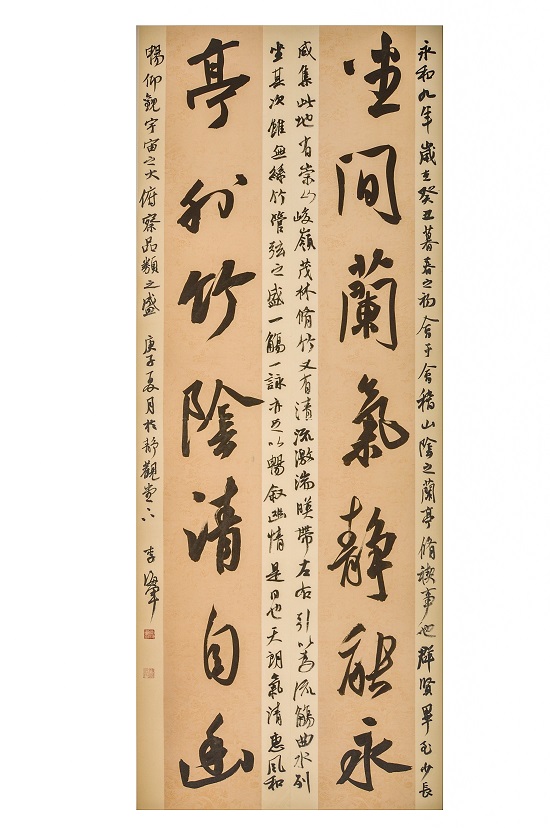 永和九年歲在癸丑暮春之初會于會稽山陰之蘭亭脩禊事也群賢畢至少長
坐間蘭氣靜能永
咸集此地有崇山峻嶺茂林脩竹又有清流激湍暎帶左右引以為流觴曲水列
坐其次雖無絲竹管弦之盛一觴一詠亦足以暢敘幽情是日也天朗氣清惠風和
亭外竹陰清自幽
暢仰觀宇宙之大俯察品類之盛 庚子夏月於靜觀堂下 李海軍